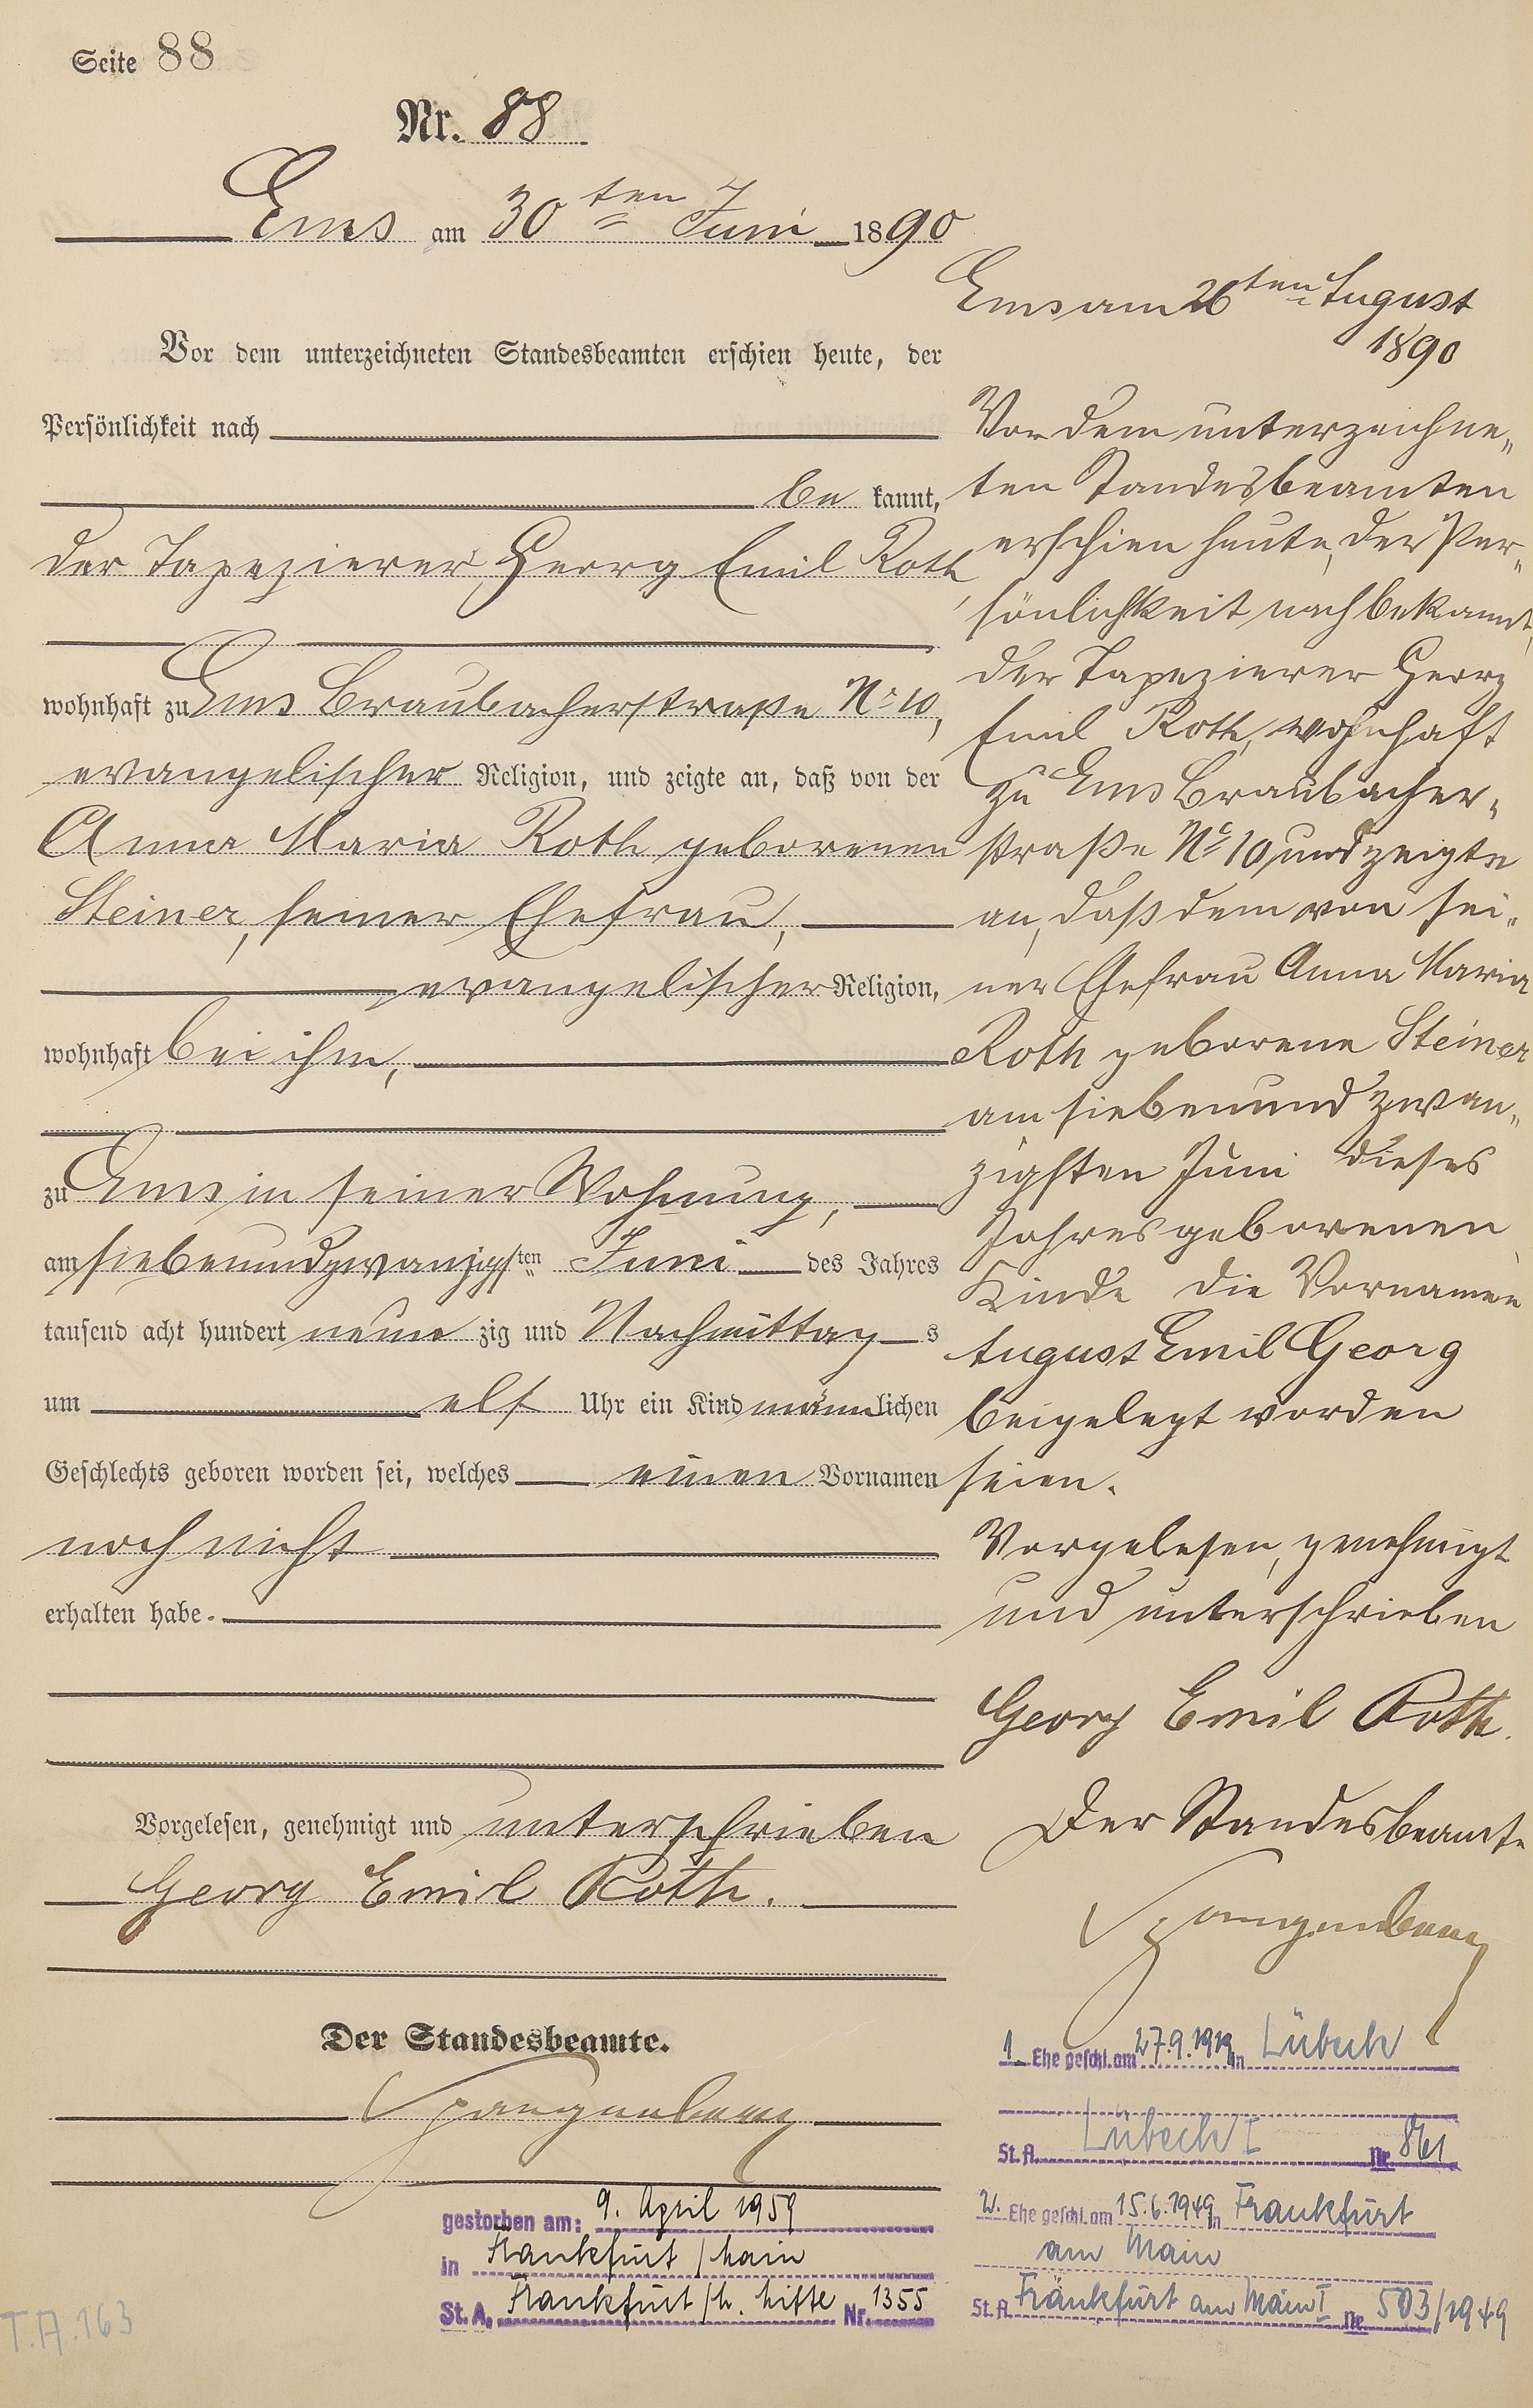 Seite 88
Nr. 88
Ems am 30ten Juni 1890
Vor dem unterzeichneten Standesbeamten erschien heute, der
Persönlichkeit nach
be kannt,
der Tapezierer Georg Emil Roth,
wohnhaft zu Ems Braubacherstraße No 10,
evangelischer Religion, und zeigte an, daß von der
Anna Maria Roth geborenen
Steiner, seiner Ehefrau,
evangelischer Religion,
wohnhaft bei ihm,
zu Ems in seiner Wohnung,
am siebenundzwanzigsten Juni des Jahres
tausend acht hundert neun zig und Nachmittag s
um elf Uhr ein Kind männlichen
Geschlechts geboren worden sei, welches einen Vornamen
noch nicht
erhalten habe.
Vorgelesen, genehmigt und unterschrieben
Georg Emil Roth.
Der Standesbeamte.
Spangenberg
gestorben am: 9. April 1959
in Frankfurt / Main
St. A. Frankfurt / M. Mitte Nr. 1355
T.A. 163
Ems am 26ten August
1890
Vor dem unterzeichne„
ten Standesbeamten
erschien heute, der Per„
sönlichkeit nach bekannt,
der Tapezierer Georg
Emil Roth, wohnhaft
zu Ems Braubacher„
straße No 10, und zeigte
an, daß dem von sei„
ner Ehefrau Anna Maria
Roth geborene Steiner
am siebenund zwan„
zigsten Juni dieses
Jahres geborenen
Kinde die Vornamen
August Emil Georg
beigelegt worden
seien.
Vorgelesen, genehmigt
und unterschrieben
Georg Emil Roth.
Der Standesbeamte
Spangenberg
1. Ehe geschl. am 27.9.1919 in Lübeck
St. A. Lübeck I Nr. 861
2. Ehe geschl. am 15.6.1949 in Frankfurt
am Main
St. A. Frankfurt am Main I Nr. 503/1949